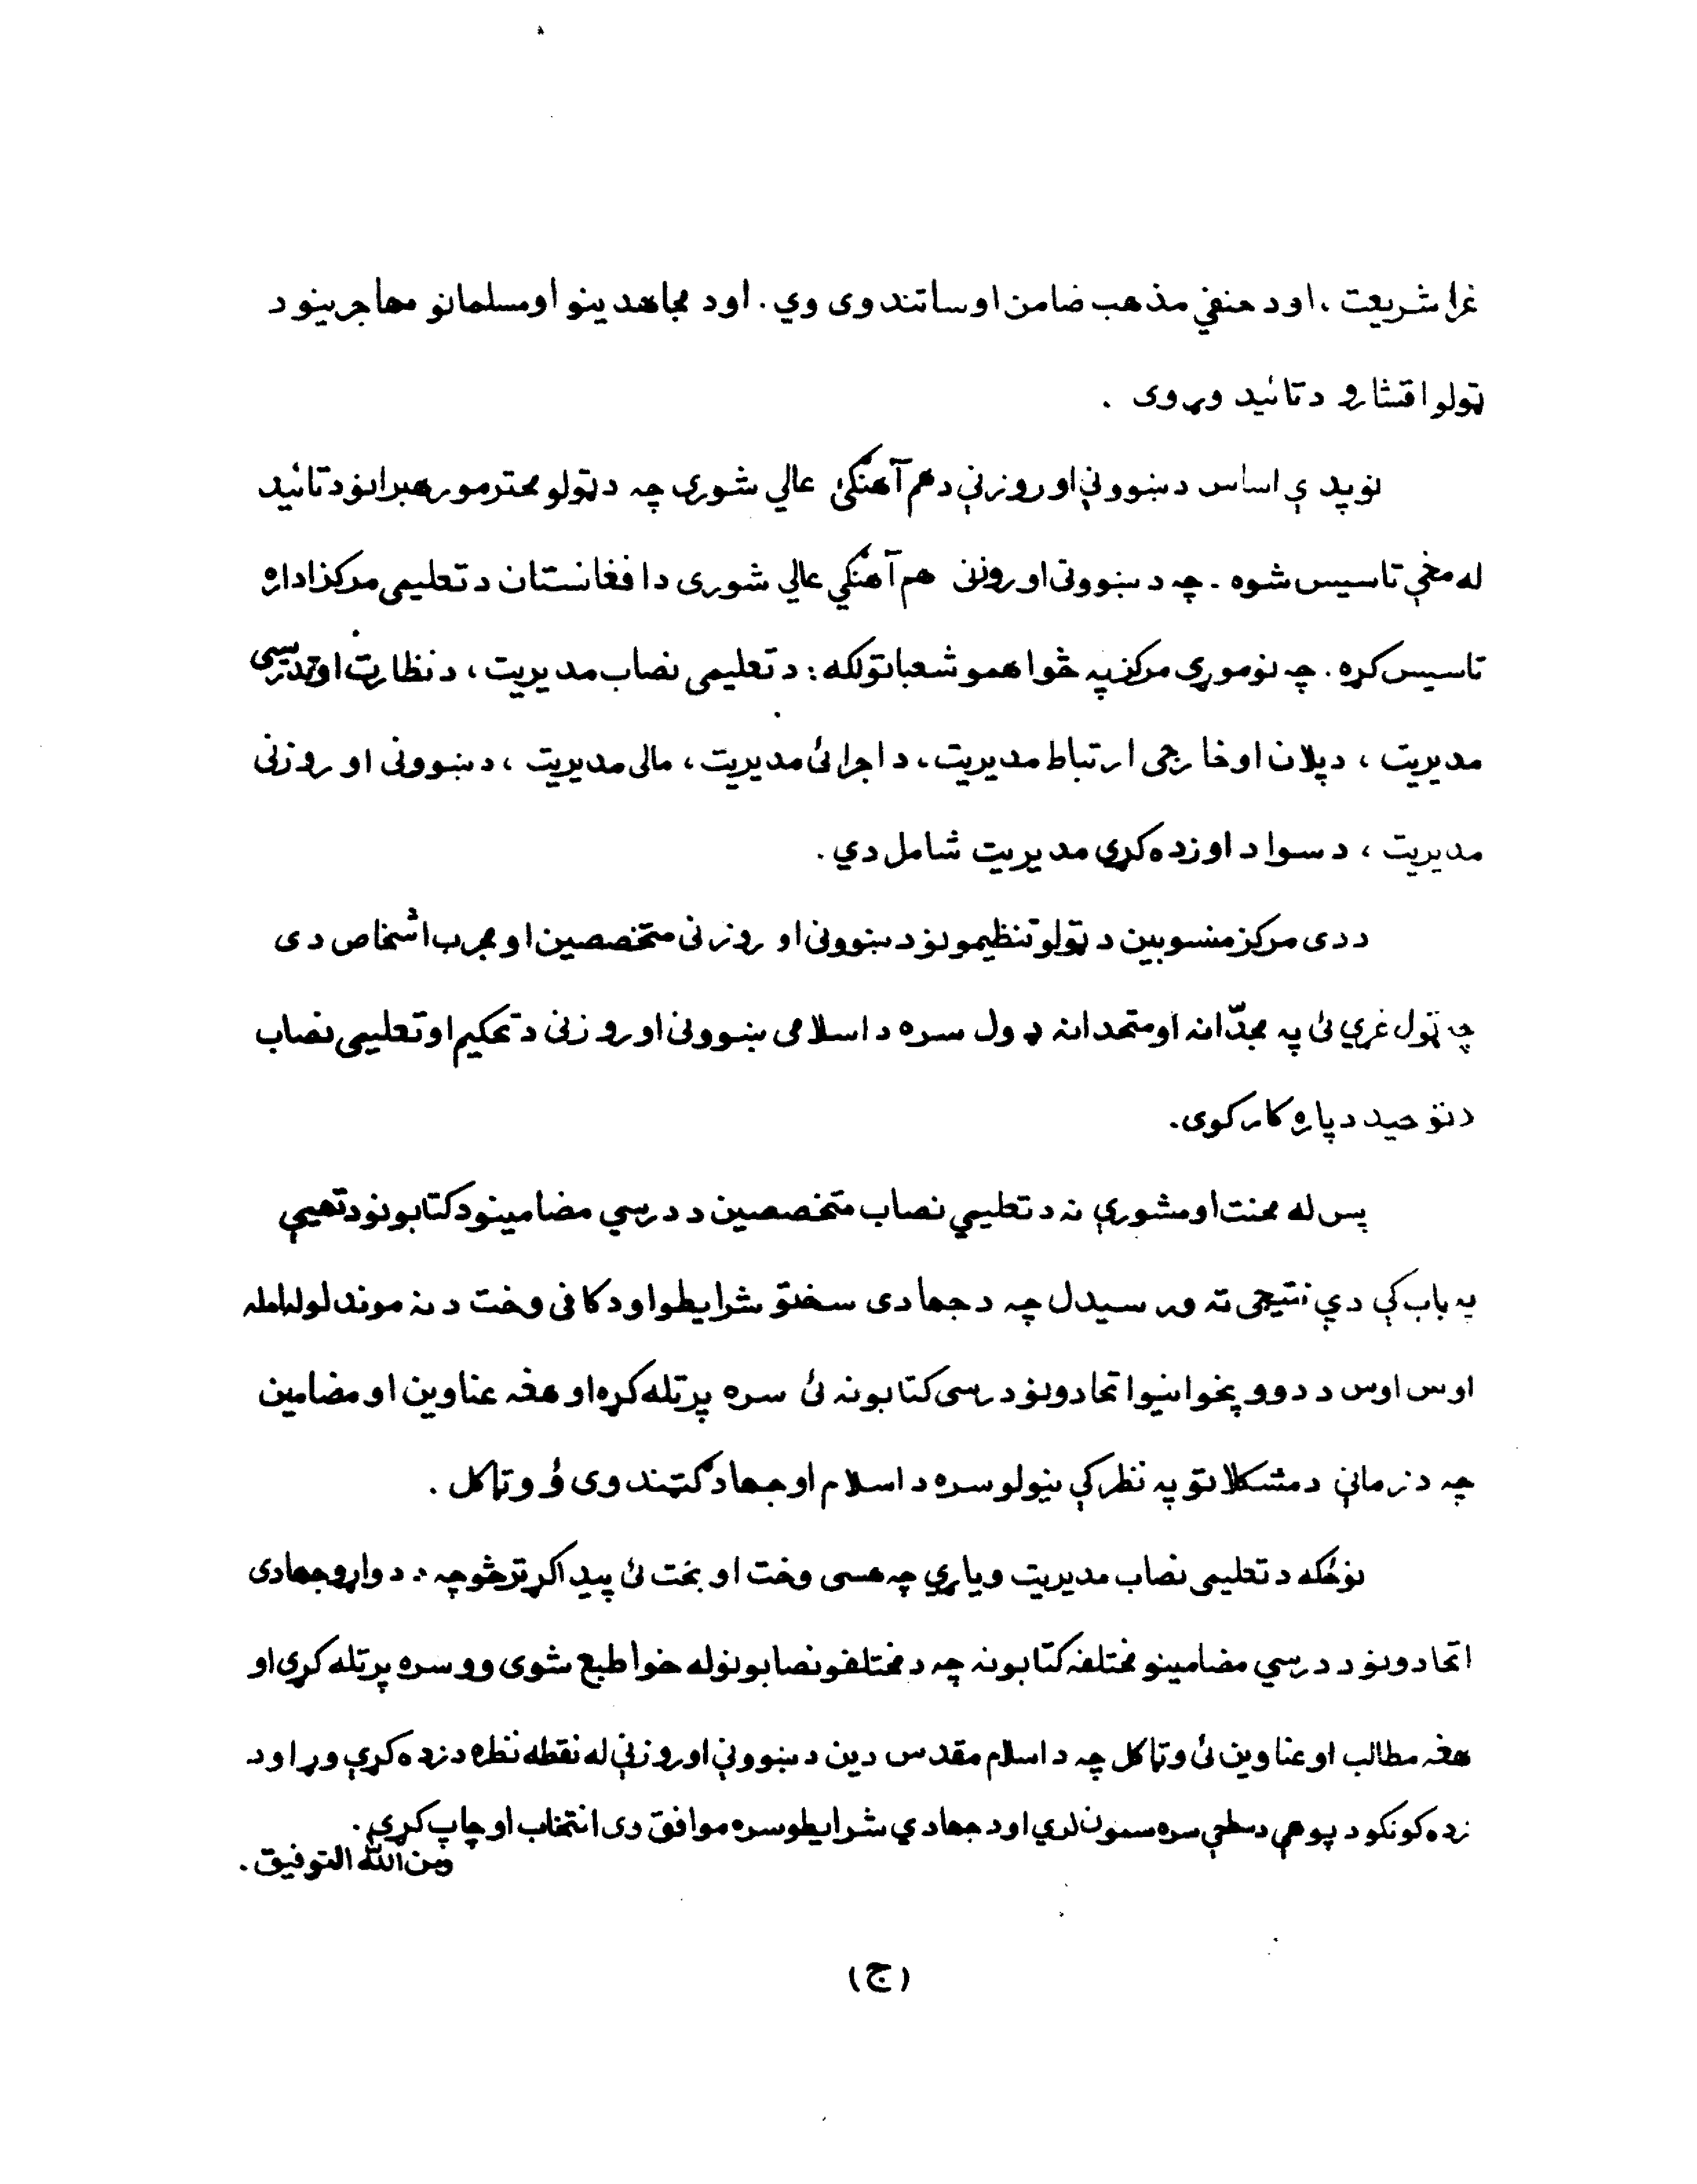 غرا شريعت ، اود حنفي مذهب ضامن او ساتندوی وي . اود مجاهدينو او مسلمانو مهاجرينو د
ټولو اقشارو د تائيد وړ وی .
نوپدې اساس د ښوونې او روزنې د هم آهنګئ عالي شوری چه د ټولو محترمو رهبرانو د تائيد
له مخې تاسيس شوه . چه د ښوونی او روزنی هم آهنګي عالي شوری د افغانستان د تعليمی مرکز اداره
تاسيس کړه . چه نوموړی مرکز په څو اهمو شعباتو لکه : د تعليمی نصاب مديريت ، د نظارت او تدريسی
مديريت ، د پلان او خارجی ارتباط مديريت ، د اجرائی مديريت ، مالی مديريت ، د ښوونی او روزنی
مديريت ، د سواد او زده کړې مديريت شامل دي .
ددی مرکز منسوبين د ټولو تنظيمونو د ښوونی او روزنی متخصصين او مجرب اشخاص دی
چه ټول غړي ئ په مجدّانه او متحدانه ډول سره د اسلامی ښوونی او روزنی د تحکيم او تعليمی نصاب
د توحيد دپاره کار کوی .
پس له محنت او مشورې نه د تعليمي نصاب متخصصين د درسي مضامينو د کتابونو د تهيې
په باب کې دې نتيجی ته ورسيدل چه د جهادی سختو شرايطو او د کافی وخت د نه موندلو له امله
اوس اوس د دوو پخوانيو اتحادونو درسی کتابونه ئ سره پرتله کړه او هغه عناوين او مضامين
چه د زمانې د مشکلاتو په نظر کې نيولو سره د اسلام او جهاد ګټندوی ؤ وټاکل .
نوځکه د تعليمی نصاب مديريت وياړي چه هسی وخت او بخت ئ پيدا کړ ترڅو چه : د واړو جهادی
اتحادونو د درسي مضامينو مختلفه کتابونه چه د مختلفو نصابونو له خوا طبع شوی وو سره پرتله کړی او
هغه مطالب او عناوين ئ وټاکل چه د اسلام مقدس دين د ښوونې او روزنې له نقطه نظره د زده کړې وړ او د
زده کونکو د پوهې د سطحې سره سمون لري او د جهادي شرايطو سره موافق دی انتخاب او چاپ کړي .
ومن الله التوفيق .
(ج)